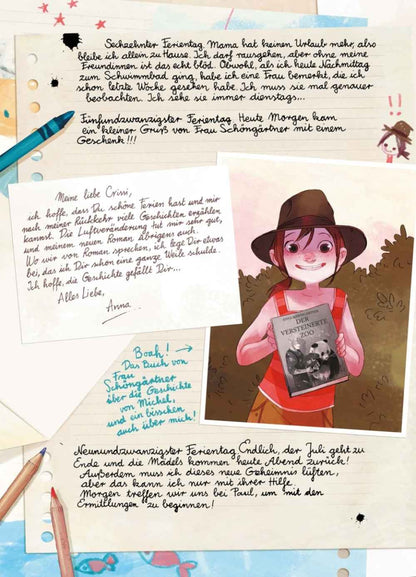 Sechzehnter Ferientag. Mama hat keinen Urlaub mehr, also
bleibe ich allein zu Hause. Ich darf rausgehen, aber ohne meine
Freundinnen ist das echt blöd. Obwohl, als ich heute Nachmittag
zum Schwimmbad ging, habe ich eine Frau bemerkt, die ich
schon letzte Woche gesehen habe. Ich muss sie mal genauer
beobachten. Ich sehe sie immer dienstags...
Fünfundzwanzigster Ferientag. Heute Morgen kam
ein kleiner Gruß von Frau Schöngärtner mit einem
Geschenk!!!
!!
Meine liebe Crissi,
ich hoffe, dass Du schöne Ferien hast und mir
nach meiner Rückkehr viele Geschichten erzählen
kannst. Die Luftveränderung tut mir sehr gut,
und meinem neuen Roman übrigens auch.
Wo wir von Roman sprechen, ich lege Dir etwas
bei, das ich Dir schon eine ganze Weile schulde.
Ich hoffe, die Geschichte gefällt Dir...
Alles Liebe,
Anna
DER
VERSTEINERTE
ZOO
Boah!
Das Buch von
Frau
Schöngärtner
über die Geschichte
von Michel,
und ein bisschen
auch über mich!
Neunundzwanzigster Ferientag. Endlich, der Juli geht zu
Ende und die Mädels kommen heute Abend zurück!
Außerdem muss ich dieses neue Geheimnis lüften,
aber das kann ich nur mit ihrer Hilfe.
Morgen treffen wir uns bei Paul, um mit den
Ermittlungen zu beginnen!